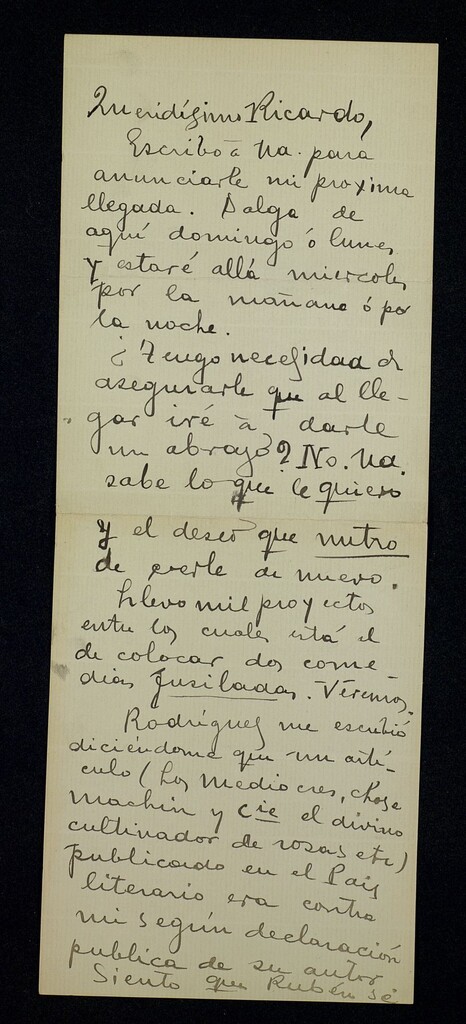 Queridísimo Ricardo,
Escribo á Ud. para
anunciarle mi proxima
llegada. Salgo de
aquí domingo ó lunes
y estaré allá miercoles
por la mañana ó por
la noche.
¿Tengo necesidad de
asegurarle que al lle-
gar iré á darle
un abrazo? No. Ud.
sabe lo que le quiero
y el deseo que nutro
de verle de nuevo.
Llevo mil proyectos
entre los cuales está el
de colocar dos come-
dias fusiladas. Veremos.
Rodríguez me escribió
diciéndome que un artí-
culo (Los mediocres, chose
machin y Cie el divino
cultivador de rosas etc)
publicado en el País
literario era contra
mi según declaración
publica de su autor
Siento que Rubén se